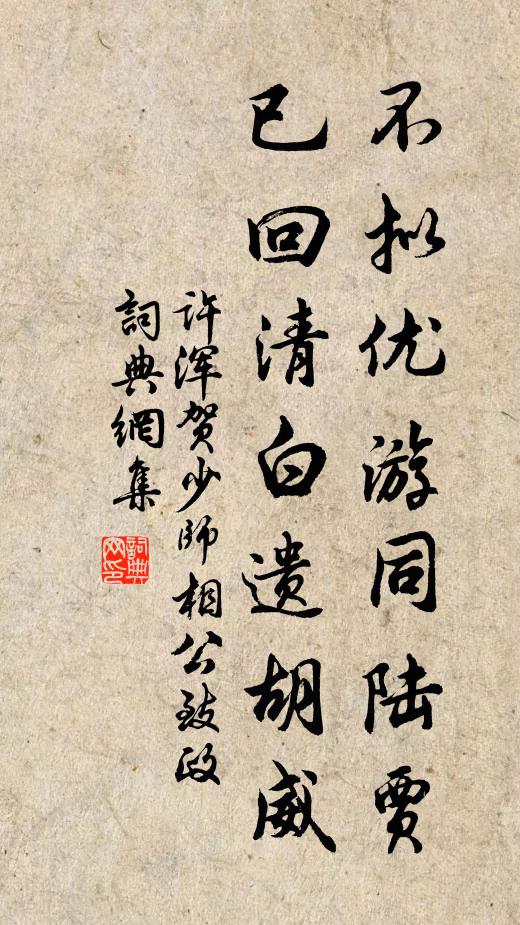 不拟优游同陆贾
已回清白遗胡威
许浑贺少師相公致政
詞典網集
詞典网印